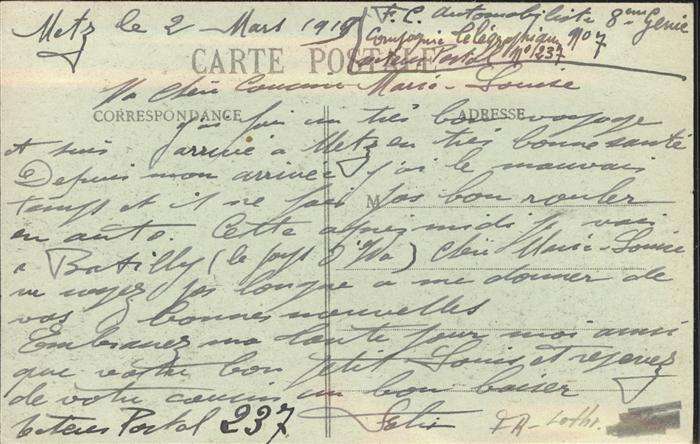 Metz le 2 Mars 1919
F. C. Automobiliste 8ème Génie
Compagnie Télégraphique No 7
Secteur Postal No 237
CARTE POSTALE
Ma Chère Cousine Marie-Louise
CORRESPONDANCE
ADRESSE
J'ai fai un très bon voyage
et suis arrivé à Metz en très bonne santé
Depuis mon arrivée j'ai le mauvais
temps et il ne fai pas bon rouler
M
en auto. Cette après midi je vais
a Batilly (le pays d'Ida) Chère Marie-Louise
ne soyez pas longue a me donner de
vos bonnes nouvelles
Embrassez ma tante pour moi ainsi
que votre bon petit Louis et recevez
de votre cousin un bon baiser
Secteur Postal 237